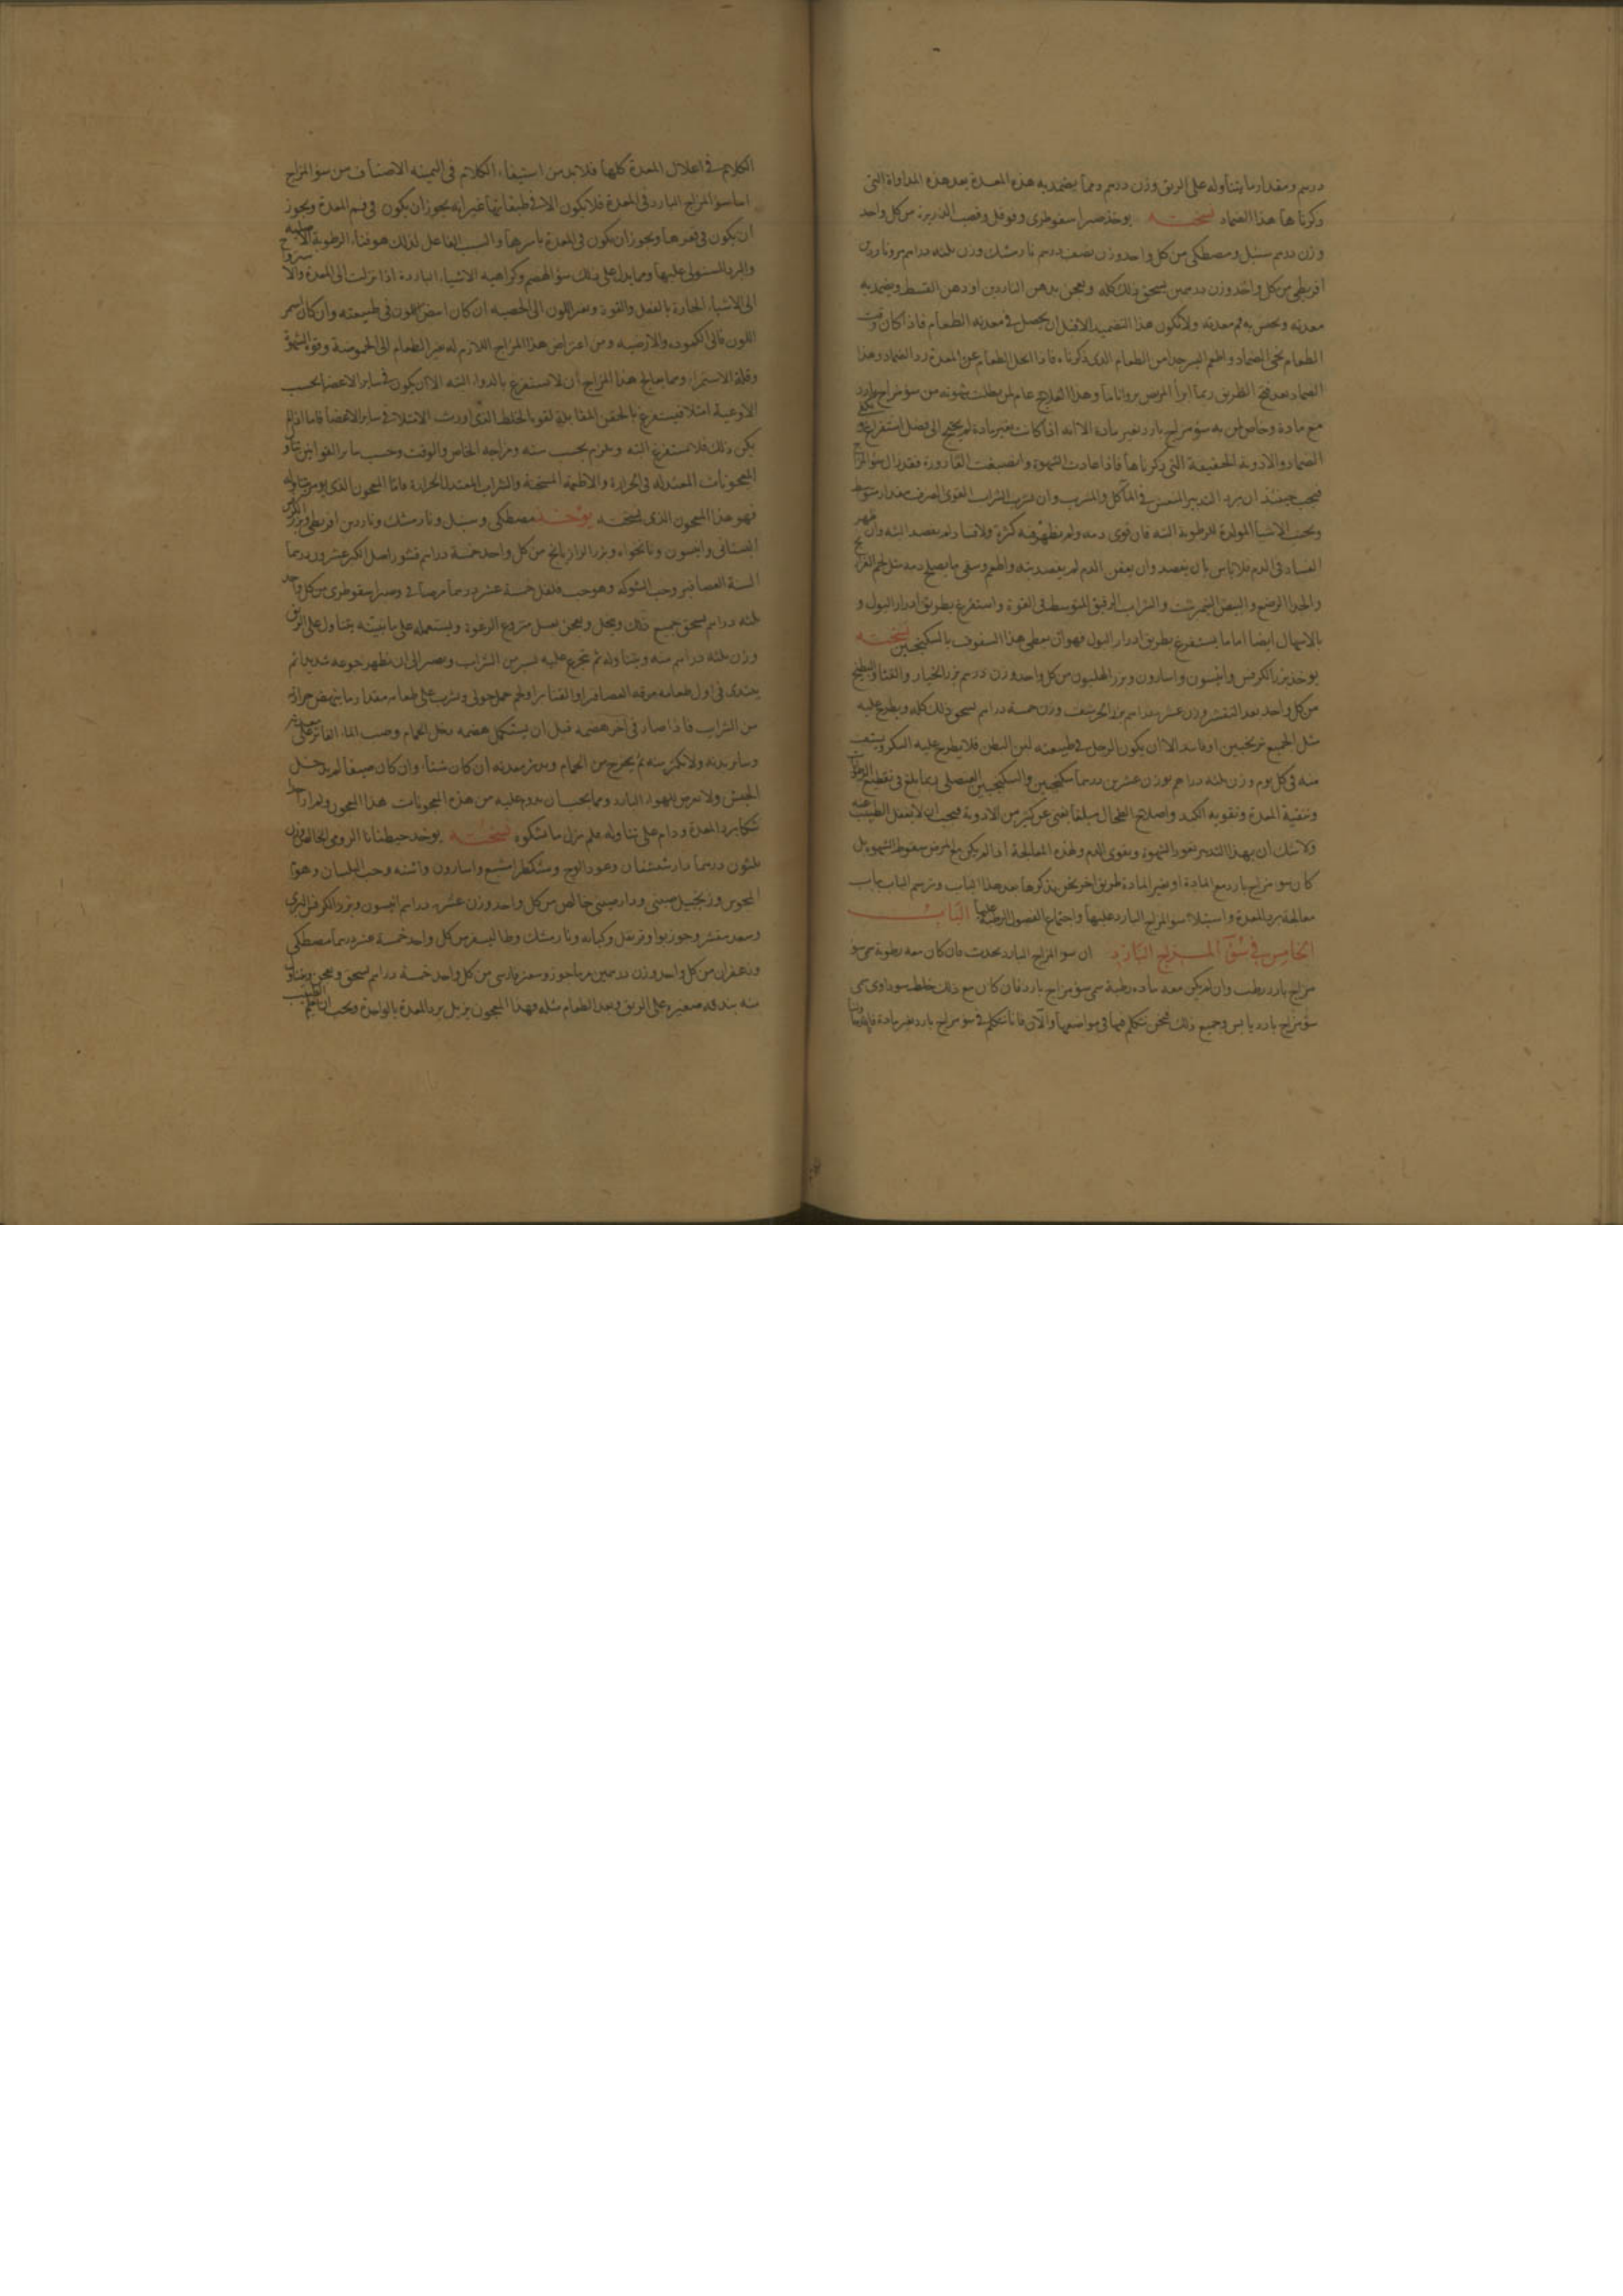 درهم ومقدار ما يتناوله على الريق وزن درهم ومما يضمد به هذه المعدة بعد هذه المداواة التى
ذكرناها هذا الضماد نسخته يوخذ صبر اسقوطرى وفوفل وقصب الذريرة من كل واحد
وزن درهم سنبل ومصطكى من كل واحد وزن نصف درهم نارمشك وزن ثلثه دراهم
اقريطى من كل واحد وزن درهمين يسحق ذلك كله ويعجن بدهن الناردين او دهن القسط ويضمد به
معدته ويخص به فم معدته ولا يكون هذا التضميد الا قبل ان يحصل فى معدته الطعام فاذا كان وقت
الطعام نحى الضماد واطعم اليسير جدا من الطعام الذى ذكرناه فاذا انحل الطعام عن المعدة رد الضماد وهذا
الضماد بعد فتح الطريق ربما ابرأ المريض بروا تاما وهذا العلاج عام لمن بطلت شهوته من سؤ مزاج بارد
مع مادة وخاص لمن به سؤ مزاج بارد بغير مادة الا انه اذا كانت بغير مادة لم يحتج الى فضل استفراغ
الضماد والادوية الخفيفة التى ذكرناها فاذا عادت الشهوة وانصبغت القارورة فقد زال سؤ المزاج
فيجب حينئذ ان يزيد التدبير المنعش فى المآكل والمشرب وان يشرب الشراب القوى الصرف بمقدار متوسط
ويجنب الاشيا المولدة للرطوبة البته فان قوى دمه ولم يظهر فيه كثرة ولا فساد لم يفصد البته وان ظهر
الفساد فى الدم فلا باس بان يفصد وان بعض الدم لم يفصد بته واطعم وسقى ما يصلح دمه مثل لحم
والجدا الرضع والبيض النيمرشت والشراب الرقيق المتوسط فى القوة واستفرغ بطريق ادرار البول و
بالاسهال ايضا اما ما يستفرغ بطريق ادرار البول فهو ان يعطى هذا السفوف بالسكنجبين نسخته
يوخذ بزر الكرفس وانيسون واسارون وبزر الهليون من كل واحد وزن درهم بزر الخيار والقثا والبطيخ
من كل واحد بعد التقشير وزن عشره دراهم بزر الحرشف وزن خمسة دراهم يسحق ذلك كله ويطرح عليه
مثل الجميع ترنجبين او فانيد الا ان يكون الرجل فى طبيعته لين البطن فلا يطرح عليه السكر ويستف
منه فى كل يوم وزن ثلثه دراهم بوزن عشرين درهما سكنجبين والسكنجبين العنصلى ربما بلغ فى تقطيع
وتنقية المعدة وتقوية الكبد واصلاح الطحال مبلغا يغنى عن كثير من الادوية فيجب ان لا يغفل الطبيب عنه
ولا شك ان بهذا التدبير تعود الشهوة ويقوى الدم ولهذه المعالجة اذا لم يكن مع المرض سقوط الشهوة بل
كان سو مزاج بارد مع المادة او بغير المادة طريق اخر نحن نذكرها بعد هذا الباب ونرسم الباب بباب
معالجة برد المعدة واستيلاء سو المزاج البارد عليها واجتماع الفضول الرطبة عليها الباب
الخامس فى سؤ المزاج البارد ان سو المزاج البارد يحدث فان كان معه رطوبة سمى سو
مزاج بارد رطب وان لم يكن معه مادة رطبة سمى سؤ مزاج بارد فان كان مع ذلك خلط سوداوى سمى
سؤ مزاج بارد يابس وجميع ذلك نحن نتكلم فيها فى مواضعها والآن فانا نتكلم فى سؤ مزاج بارد بغير مادة
الكلام فى اعلال المعدة كلها فلا بد من استيفاء الكلام فى الثمينه الاصناف من سؤ المزاج
اما سؤ المزاج البارد فى المعدة فلا يكون الا فى طبقاتها غير انه يجوز ان يكون فى فم المعدة ويجوز
ان يكون فى قعرها ويجوز ان يكون فى المعدة باسرها والسبب الفاعل لذلك هو فناء الرطوبة
والبرد المستولى عليها ومما يدل على ذلك سؤ الهضم وكراهية الاشياء الباردة اذا نزلت الى المعدة
الى الاشياء الحارة بالفعل والقوة وتغير اللون الى الجصيه ان كان ابيض اللون فى طبيعته وان كان اسمر
اللون فالى الكموده والارضيه ومن اعراض هذا المزاج اللازم له تغير الطعام الى الحموضة وقوة الشهوة
وقلة الاستمراء ومما يعالج هذا المزاج ان لا يستفرغ بالدواء البته الا ان يكون فى ساير الاعضا بحسب
الاوعية امتلا فيستفرغ بالحقن المقابلة لقوة الخلط الذى اورث الامتلا فى ساير الاعضا فاما اذا لم
يكن ذلك فلا يستفرغ البته ويلزم بحسب سنه ومزاجه الخاص والوقت وحسب ساير القوانين تناول
المعجونات المعتدله فى الحرارة والاطعمة المسخنة والشراب المعتدل الحرارة فاما المعجون الذى يومر بتناوله
فهو هذا المعجون الذى نسخته يوخذ مصطكى وسنبل ونارمشك وناردين اقريطى وبزر الكرفس
البستانى وانيسون ونانخواه وبزر الرازيانج من كل واحد خمسة دراهم قشور اصل الكبر عشرون درهما
السنة العصافير وحب الشوكه وهو حب فلفل خمسة عشر درهما مرصافى وصبر اسقوطرى من كل واحد
ثلثه دراهم يسحق جميع ذلك وينخل ويعجن بعسل منزوع الرغوة ويستعمله على ما بقيته يتناول على الريق
وزن ثلثه دراهم منه ويتناوله ثم يتجرع عليه يسير من الشراب ويصبر الى ان تظهر جوعه شديد ثم
يغتدى فى اول طعامه مرقه العصافير او القنابر او لحم حمل حولى ويشرب على طعامه مقدار ما ينهض حرارة
من الشراب فاذا صار فى آخر هضمه قبل ان يستكمل هضمه دخل الحمام وصب الماء الفاتر على معدته
وساير بدنه ولا يكثر منه ثم يخرج من الحمام ويدثر معدنه ان كان شتاء وان كان صيفا لم يدخل
الخيش ولا تعرض للهواء البارد ومما يجب ان يدوم عليه من هذه المعجونات هذا المعجون ولم ار احدا
شكا برد المعدة ودام على تناوله فلم يزل ما يشكوه نسخته يوخذ جنطيانا الرومى الخالص وزن
ثلثون درهما دارشيشعان وعود الوج ومشكطرامشيع واسارون واشنه وحب البلسان وهوم
المجوس وزنجبيل صينى ودار صينى خالص من كل واحد وزن عشره دراهم انيسون وبزر الكرفس البرى
وسعد مقشر وجوزبوا وقرنفل وكبابه ونارمشك وطاليسفر من كل واحد خمسة عشر درهما مصطكى
وزعفران من كل واحد وزن درهمين مرماحوز وسعتر فارسى من كل واحد خمسة دراهم يسحق ويعجن ويتناول
منه بندقه صغيره على الريق وبعد الطعام مثله فهذا المعجون يزيل برد المعدة بالواحدة ويجب ان يعلم الطبيب